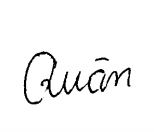 Quân